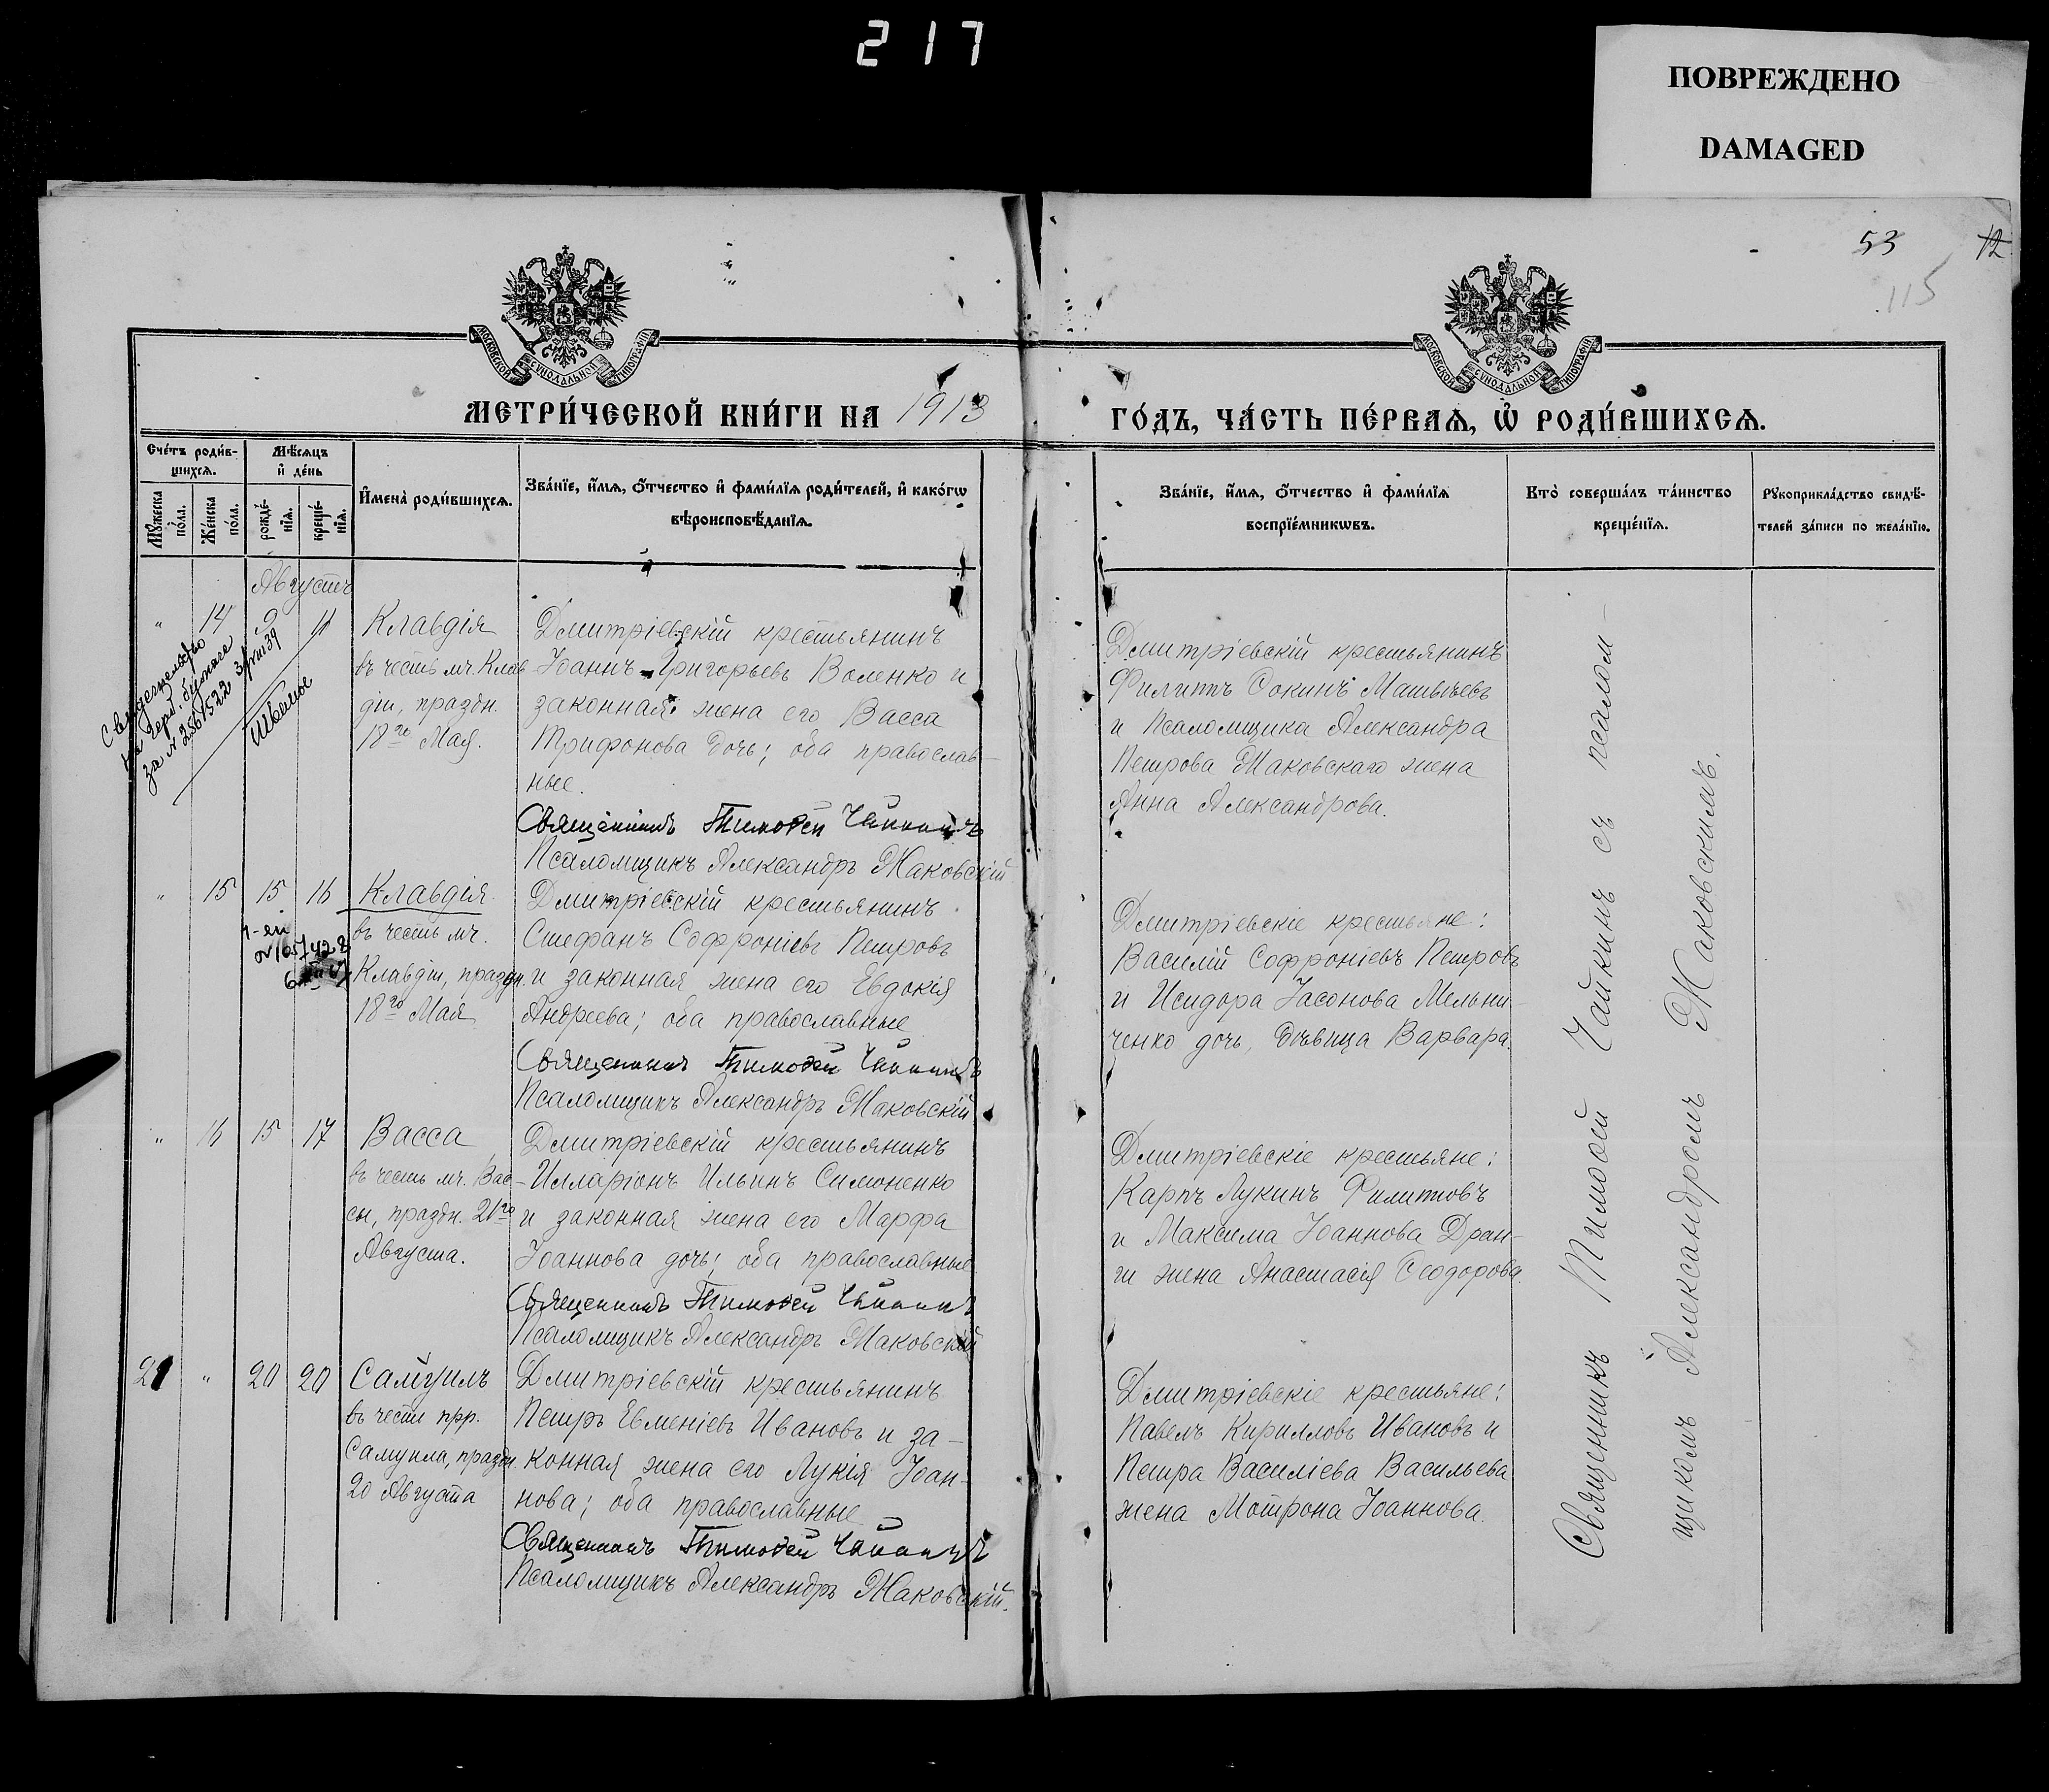 217
ПОВРЕЖДЕНО
DAMAGED
53 12
115
МОСКОВСКОЙ СѴНОДАЛЬНОЙ ТИПОГРАФІИ
МОСКОВСКОЙ СѴНОДАЛЬНОЙ ТИПОГРАФІИ
МЕТРИ́ЧЕСКОЙ КНИ́ГИ НА 1913
ГО́ДЪ, ЧА́СТЬ ПЕ́РВАѦ, Ѡ҆ РОДИ́ВШИХСѦ.
Сче́тъ роди́в-
шихсѧ.
Мѣ́сѧцъ
и҆ де́нь
Мꙋ́жеска
по́ла.
Же́нска
по́ла.
рожде́-
нїѧ.
креще́-
нїѧ.
И҆мена̀ роди́вшихсѧ.
Зва́нїе, и҆́мѧ, ѻ҆́тчество и҆ фами́лїѧ роди́телей, и҆ како́гѡ
вѣроисповѣ́данїѧ.
Зва́нїе, и҆́мѧ, ѻ҆́тчество и҆ фами́лїѧ
воспрїе́мникѡвъ.
Кто̀ соверша́лъ та́инство
креще́нїѧ.
Рꙋкоприкла́дство свидѣ́-
телей за́писи по жела́нїю.
Августъ
" 14 9 11
Клавдія
въ честь мч. Клав
діи, праздн.
18го Мая.
Дмитріевскій крестьянинъ
Іоаннъ Григорьевъ Воленко и
законная жена его Васса
Трифонова дочь; оба православ-
ные.
Священникъ Тимоѳей Чайкинъ
Псаломщикъ Александръ Маковскій
Дмитріевскій крестьянинъ
Филиппъ Сокинъ Матвѣевъ
и Псаломщика Александра
Петрова Маковскаго жена
Анна Александрова.
Свидетельство
на герб. бумаге
за № 2561522
" 15 15 16
Клавдія
въ честь мч.
Клавдіи, праздн.
18го Мая
Дмитріевскій крестьянинъ
Стефанъ Софроніевъ Петровъ
и законная жена его Евдокія
Андреева; оба православные
Священникъ Тимоѳей Чайкинъ
Псаломщикъ Александръ Маковскій
Дмитріевскіе крестьяне:
Василій Софроніевъ Петровъ
и Исидора Іасонова Мельни-
ченко дочь, дѣвица Варвара.
" 16 15 17
Васса
въ честь мч. Вас-
сы, праздн. 21го
Августа.
Дмитріевскій крестьянинъ
Илларіонъ Ильинъ Симоненко
и законная жена его Марфа
Іоаннова дочь; оба православные
Священникъ Тимоѳей Чайкинъ
Псаломщикъ Александръ Маковскій
Дмитріевскіе крестьяне:
Карпъ Лукинъ Филиповъ
и Максима Іоаннова Дран-
ги жена Анастасія Ѳеодорова.
21 " 20 20
Самуилъ
въ честь прр.
Самуила, праздн.
20 Августа
Дмитріевскій крестьянинъ
Петръ Евменіевъ Ивановъ и за-
конная жена его Лукія Іоан-
нова; оба православные
Священникъ Тимоѳей Чайкинъ
Псаломщикъ Александръ Маковскій.
Дмитріевскіе крестьяне:
Павелъ Кирилловъ Ивановъ и
Петра Василіева Васильева
жена Мотрона Іоаннова.
Священникъ Тимоѳей Чайкинъ съ псалом-
щикомъ Александромъ Маковскимъ.